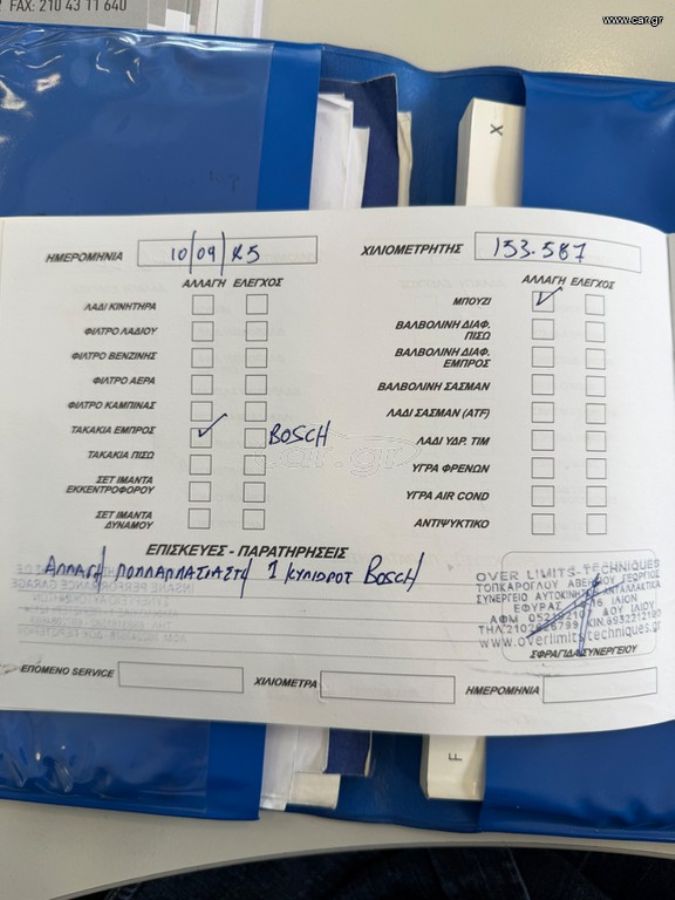 FAX: 210 43 11 640
www.car.gr
X
ΗΜΕΡΟΜΗΝΙΑ 10/09/25 ΧΙΛΙΟΜΕΤΡΗΤΗΣ 153.587
ΑΛΛΑΓΗ ΕΛΕΓΧΟΣ ΑΛΛΑΓΗ ΕΛΕΓΧΟΣ
ΛΑΔΙ ΚΙΝΗΤΗΡΑ ΜΠΟΥΖΙ ✓
ΦΙΛΤΡΟ ΛΑΔΙΟΥ ΒΑΛΒΟΛΙΝΗ ΔΙΑΦ. ΠΙΣΩ
ΦΙΛΤΡΟ ΒΕΝΖΙΝΗΣ ΒΑΛΒΟΛΙΝΗ ΔΙΑΦ. ΕΜΠΡΟΣ
ΦΙΛΤΡΟ ΑΕΡΑ ΒΑΛΒΟΛΙΝΗ ΣΑΣΜΑΝ
ΦΙΛΤΡΟ ΚΑΜΠΙΝΑΣ ΛΑΔΙ ΣΑΣΜΑΝ (ATF)
ΤΑΚΑΚΙΑ ΕΜΠΡΟΣ ✓ BOSCH ΛΑΔΙ ΥΔΡ. ΤΙΜ
ΤΑΚΑΚΙΑ ΠΙΣΩ ΥΓΡΑ ΦΡΕΝΩΝ
ΣΕΤ ΙΜΑΝΤΑ ΕΚΚΕΝΤΡΟΦΟΡΟΥ ΥΓΡΑ AIR COND
ΣΕΤ ΙΜΑΝΤΑ ΔΥΝΑΜΟΥ ΑΝΤΙΨΥΚΤΙΚΟ
car.gr
ΕΠΙΣΚΕΥΕΣ - ΠΑΡΑΤΗΡΗΣΕΙΣ
ΑΛΛΑΓΗ ΠΟΛΛΑΠΛΑΣΙΑΣΤΗ 1 BOSCH
OVER LIMITS-TECHNIQUES
ΤΟΠΚΑΡΟΓΛΟΥ ΓΕΩΡΓΙΟΣ
ΣΥΝΕΡΓΕΙΟ ΑΝΤΑΛΛΑΚΤΙΚΑ
ΕΦΥΡΑΣ ΙΛΙΟΝ
ΑΦΜ ΔΟΥ ΙΛΙΟΥ
www.overlimitstechniques.gr
ΣΦΡΑΓΙΔΑ ΣΥΝΕΡΓΕΙΟΥ
ΕΠΟΜΕΝΟ SERVICE ΧΙΛΙΟΜΕΤΡΑ ΗΜΕΡΟΜΗΝΙΑ
F